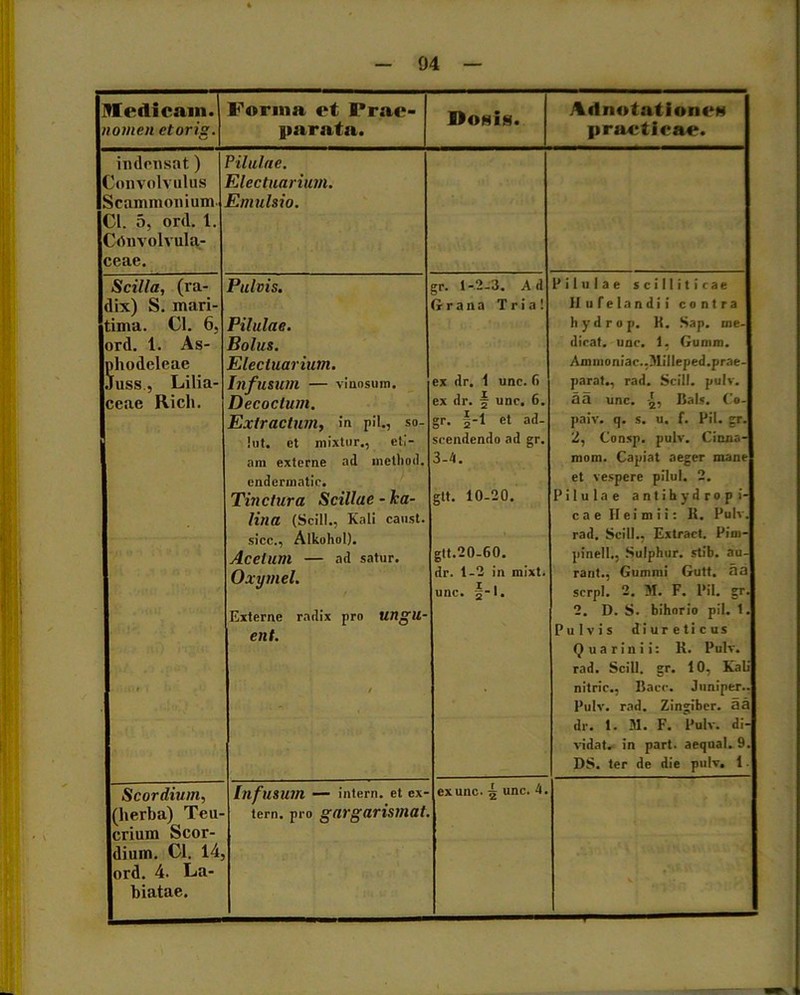 — 94 —
Medicam.
nomen et orig.
Forma et Prae-
parata.
Dosis.
Adnotationes
practicae.
indensat)
Convolvulus
Scammonium.
Cl. 5, ord. 1.
Convolvula-
ceae.
Pilulae.
Electuarium.
Emulsio.
Scilla, (ra-
dix) S. mari-
tima. Cl. 6,
ord. 1. As-
phodeleae
Juss., Lilia-
ceae Rich.
Pulvis.
Pilulae.
Bolus.
Electuarium.
Infusum — vinosum.
Decoctum.
Extractum, in pil., so-
lut. et mixtur., eti-
am externe ad method.
endermatic.
Tinctura Scillae-ka-
lina (Scill., Kali caust.
sicc., Alkohol).
Acetum — ad satur.
Oxymel.
Externe radix pro ungu-
ent.
gr. 1-2-3. Ad
Grana Tria!
ex dr. 1 unc. 6
ex dr. ½ unc. 6.
gr. ½-1 et ad-
scendendo ad gr.
3-4.
gtt. 10-20.
gtt.20-60.
dr. 1-2 in mixt.
unc. ½-1.
Pilulae scilliticae
Hufelandii contra
hydrop. R. Sap. me-
dicat. unc. 1. Gumm.
Ammoniac., Milleped.prae-
parat., rad. Scill. pulv.
āā unc. ½, Bals. Co-
paiv. q. s. u. f. Pil. gr.
2, Consp. pulv. Cinna-
mom. Capiat aeger mane
et vespere pilul. 2.
Pilulae antihydropi-
cae Heimii: R. Pulv.
rad. Scill., Extract. Pim-
pinell., Sulphur. stib. au-
rant., Gummi Gutt. āā
scrpl. 2. M. F. Pil. gr.
2. D. S. bihorio pil. 1.
Pulvis diureticus
Quarinii: R. Pulv.
rad. Scill. gr. 10, Kali
nitric., Bacc. Juniper.,
Pulv. rad. Zingiber. āā
dr. 1. M. F. Pulv. di-
vidat. in part. aequal. 9.
DS. ter de die pulv. 1.
Scordium,
(herba) Teu-
crium Scor-
dium. Cl. 14,
ord. 4. La-
biatae.
Infusum — intern. et ex-
tern. pro gargarismat.
ex unc. ½ unc. 4.